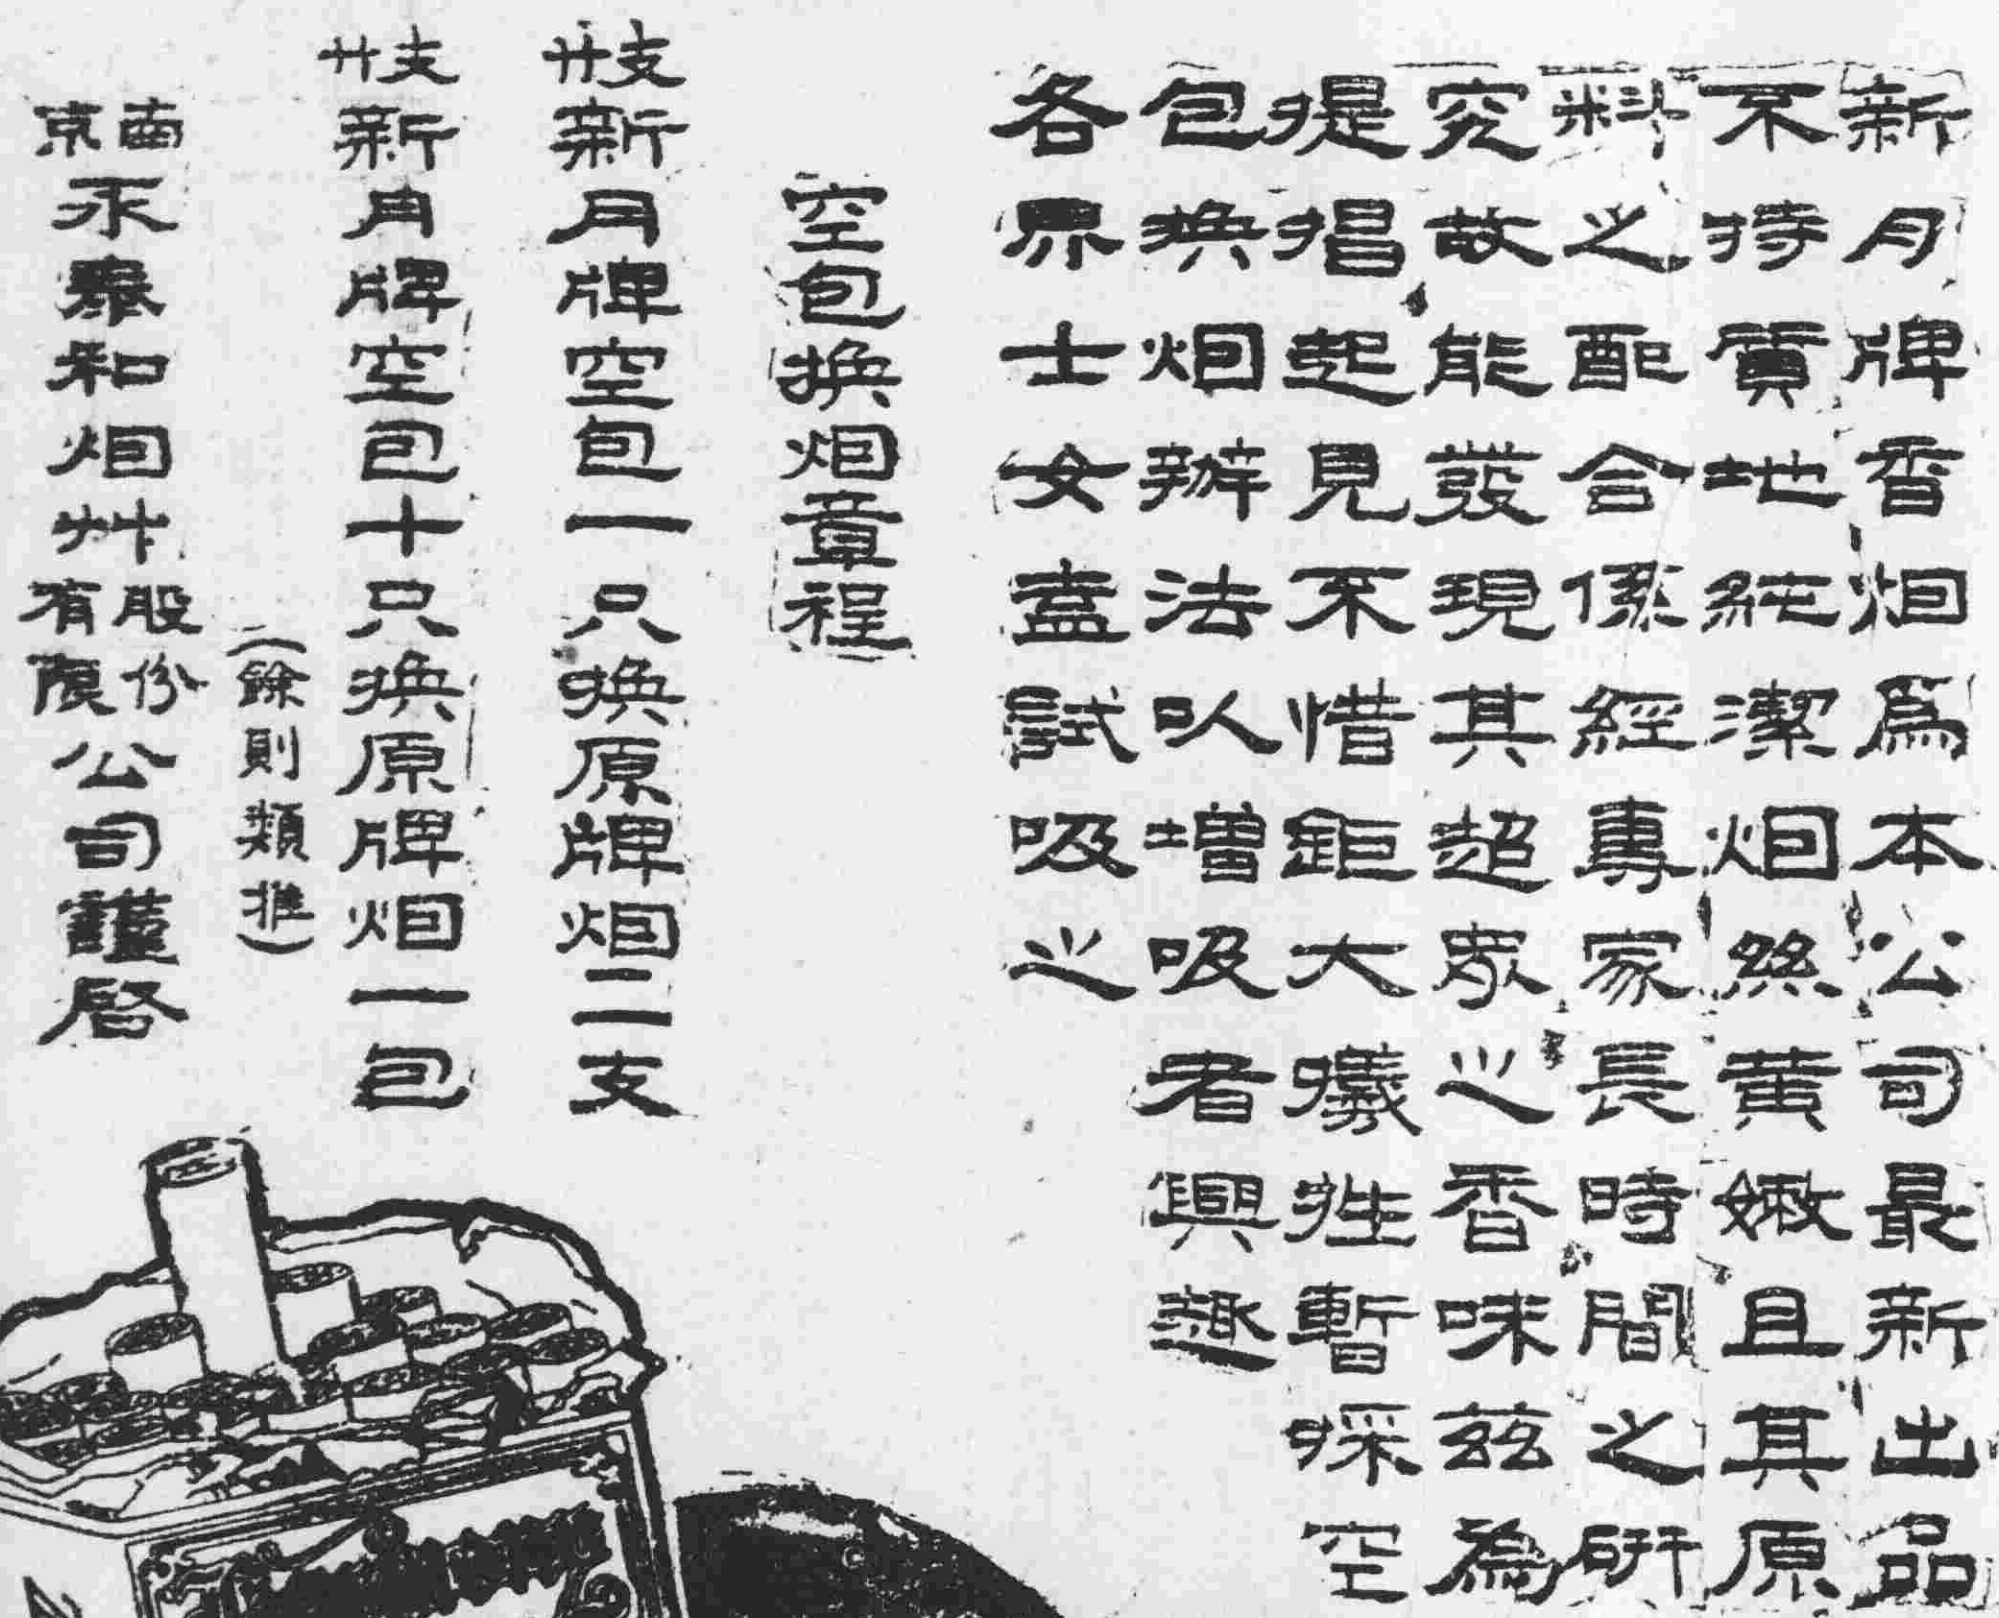 新月牌香烟爲本公司最新出品
不特質地純潔烟絲黃嫩且其原
料之配合係經專家長時間之研
究故能發現其超衆之香味茲為
提倡起見不惜鉅大犧牲暫採空
包換烟辦法以增吸者興趣
各界士女盍試吸之
空包換烟章程
廿支新月牌空包一只換原牌烟二支
廿支新月牌空包十只換原牌烟一包
(餘則類推)
南京永泰和烟艸股份有限公司謹啓